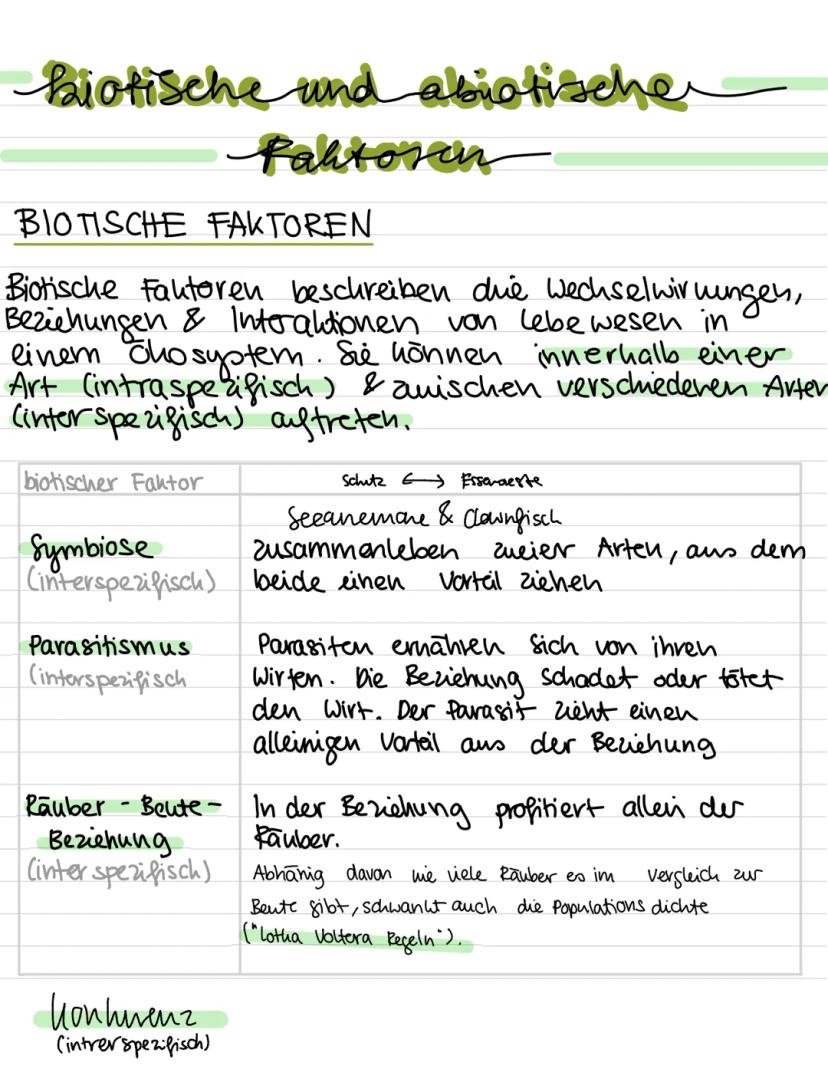 Biotische und abiotische
Faktoren
BIOTISCHE FAKTOREN
Biotische Faktoren beschreiben die Wechselwirkungen,
Beziehungen & Interaktionen von Lebewesen in
einem Ökosystem. Sie können innerhalb einer
Art (intraspezifisch) & zwischen verschiedenen Arten
(interspezifisch) auftreten.
biotischer Faktor
Schutz ↔ Essensreste
Seeanemone & Clownfisch
Symbiose
(interspezifisch)
zusammenleben zweier Arten, aus dem
beide einen Vorteil ziehen
Parasitismus
(interspezifisch
Parasiten ernähren sich von ihren
Wirten. Die Beziehung schadet oder tötet
den Wirt. Der Parasit zieht einen
alleinigen Vorteil aus der Beziehung
Räuber-Beute-
Beziehung
(interspezifisch)
In der Beziehung profitiert allein der
Räuber.
Abhänig davon wie viele Räuber es im Vergleich zur
Beute gibt, schwankt auch die Populationsdichte
("Lotka Voltera Regeln").
Konkurenz
(intrerspezifisch)